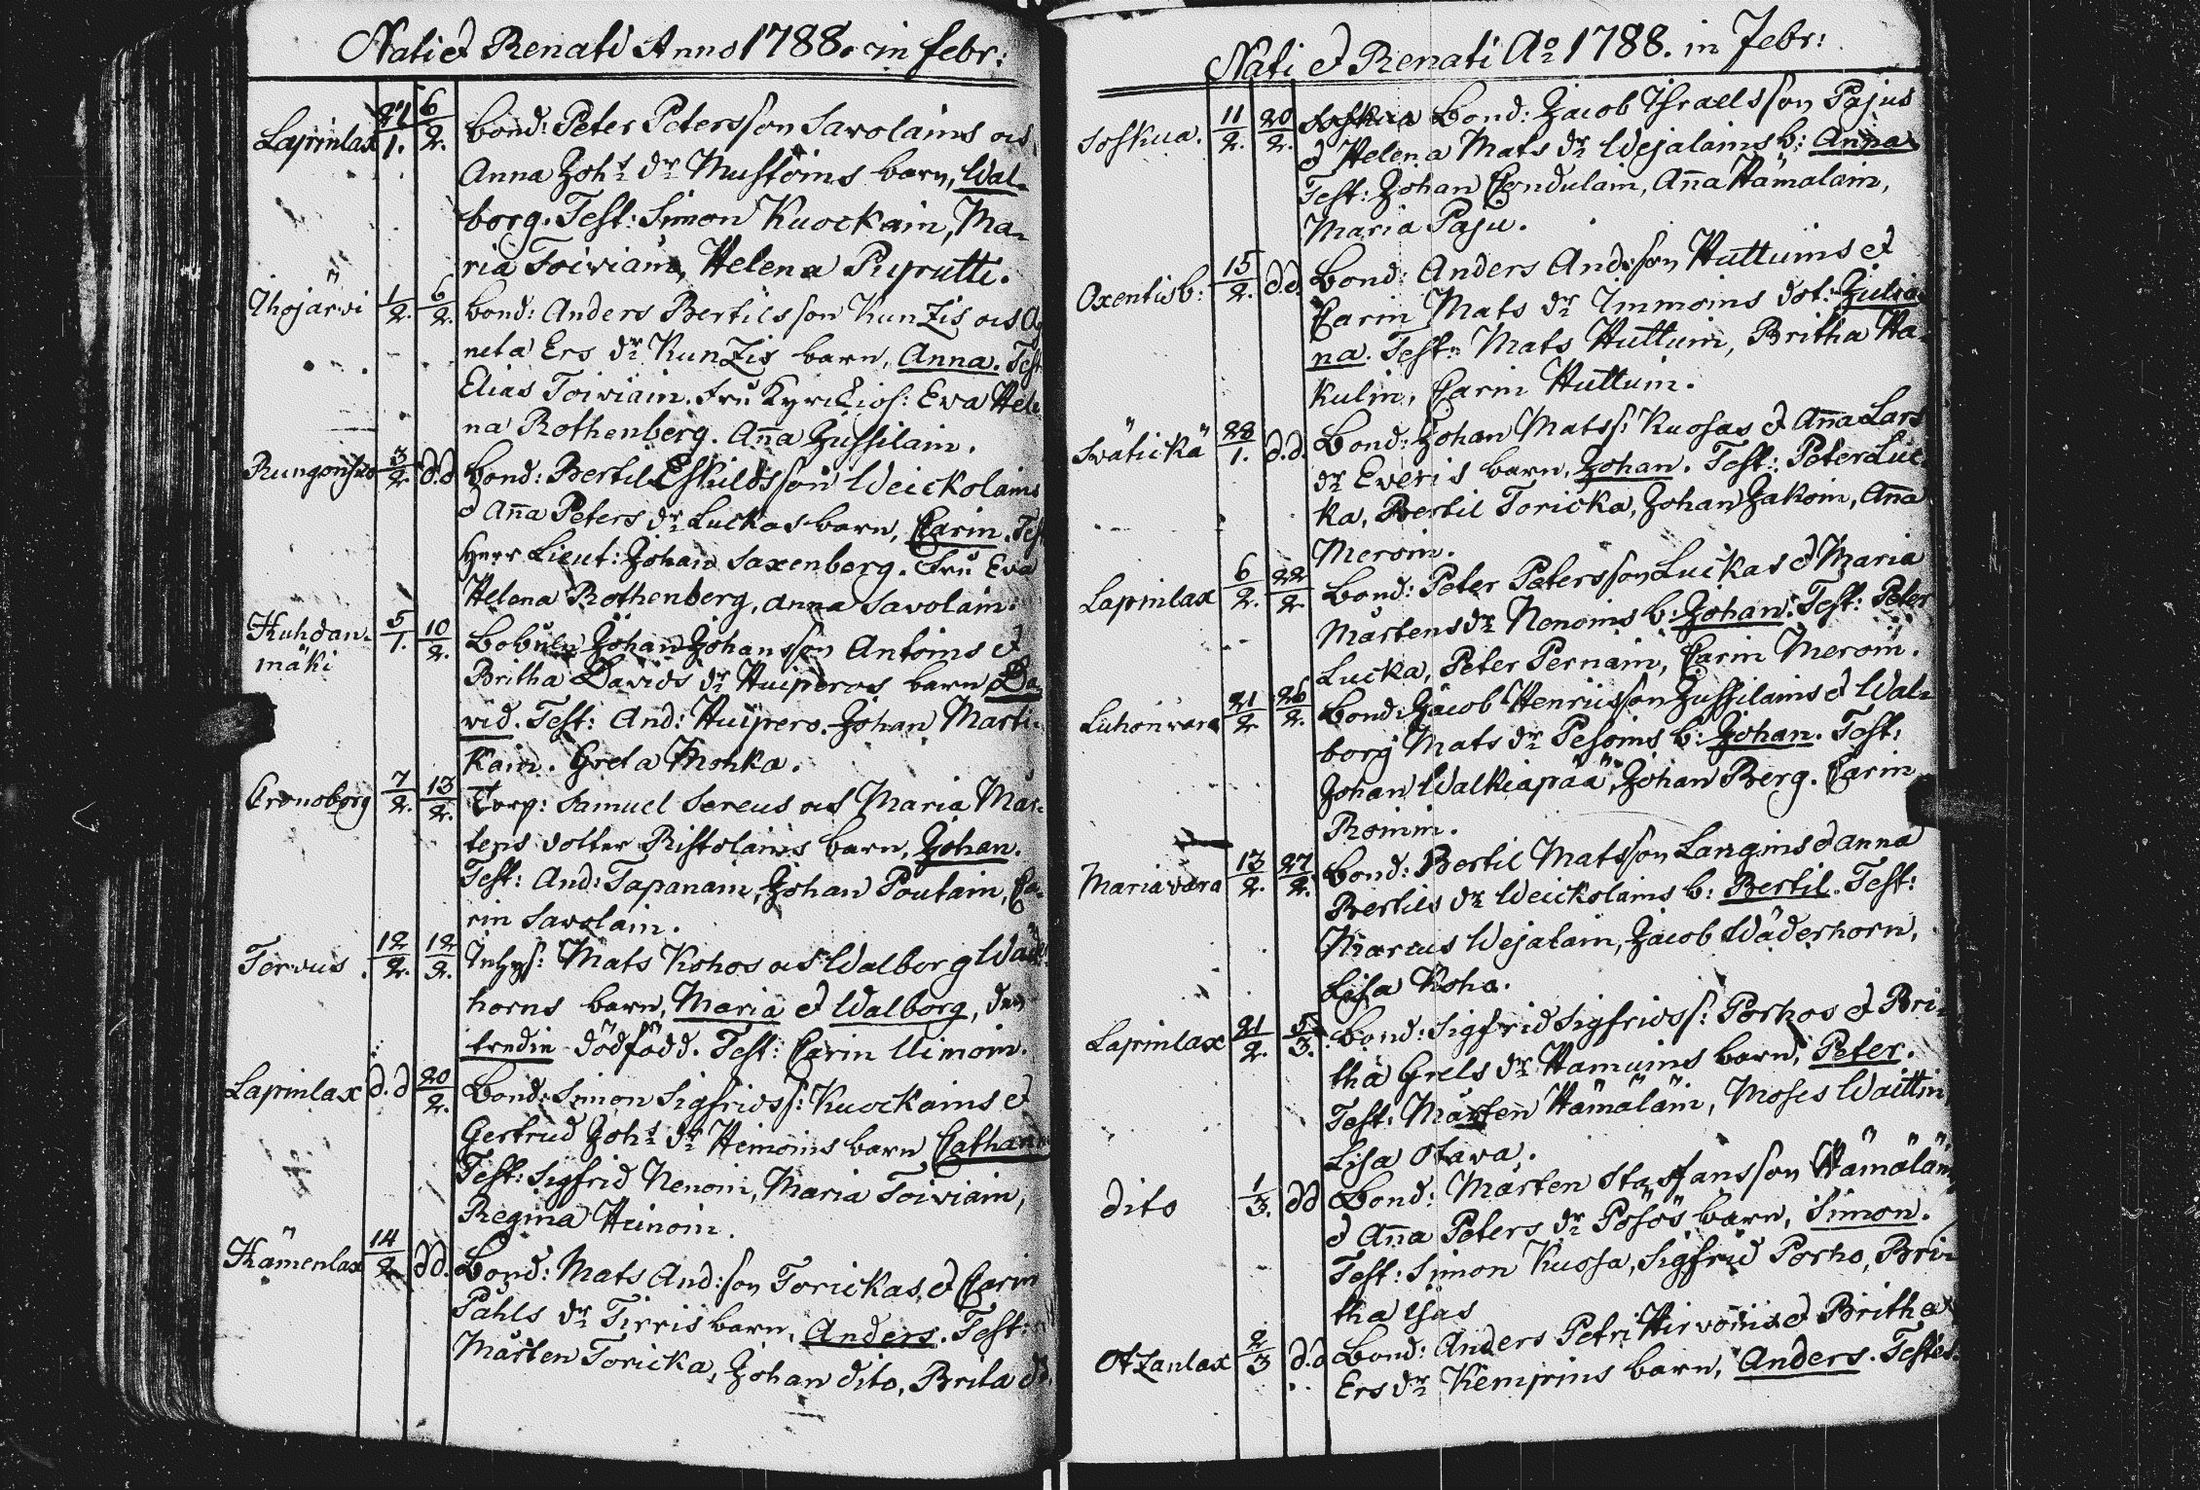 Nati et Renati Anno 1788. in febr:
Lapinlax 27/1. 6/2. bond: Peter Petersson Savolains och
Anna Johs dr Mustoins barn, Wal-
borg. Test: Simon Kuockain, Ma-
ria Toiviain, Helena Puputti.
Ihojärvi 1/2. 6/2. bond: Anders Bertilsson Kunzis och Ag
neta Ers dr Kunzis barn, Anna. Test
Elias Toiviain. Fru Eva Hele
na Rothenberg. Anna Jussilain.
3/2. d:d bond: Bertil Eskildsson Weickolains
et Anna Peters dr Luckas barn, Carin. Tes
Herr Lieut: Johan Saxenberg. Fru Eva
Helena Rothenberg, Anna Savolain.
Kuhdan- 5/1. 10/2. Johan Johansson Antoins et
mäki Britha Davids dr Huiperos barn Da
vid. Test: And: Huipero. Johan Marti-
kain. Greta Monka.
Cronoborg 7/2. 13/2. Torp: Samuel Sereus och Maria Mår-
tens dotter Ristolains barn, Johan.
Test: And: Tapanain, Johan Poutain, Ca-
rin Savolain.
Tervus 12/2. 12/2. Inhys: Mats Kohos och Walborg Wäde
horns barn, Maria et Walborg, den
tredie dödfödd. Test: Carin Uimoin.
Lapinlax d:d 20/2. Bond: Simon Sigfridss: Kuockains et
Gertrud Johs dr Heinoins barn Cathari
Test: Sigfrid Nenoin, Maria Toiviain,
Regina Heinoin.
Kämenlax 14/2. dd. Bond: Mats And:son Torickas et Carin
Påhls dr Tirris barn, Anders. Test:
Mårten Toricka, Johan dito, Brita d:
Nati et Renati Ao 1788. in Febr:
Soskua. 11/2. 20/2. Bond: Jacob Israelsson Pajus
et Helena Mats dr Wejalains b: Anna
Test: Johan Condulain, Anna Hämäläin,
Maria Paju.
Oxentisb: 15/2. d:d. Bond: Anders Andsson Huttuins et
Carin Mats dr Immoins dot: Julia
na. Test: Mats Huttuin, Britha Ha-
kulin, Carin Huttuin.
Svätickä 28/1. d:d. Bond: Johan Matss: Kuosas et Anna Lars
dr Everis barn, Johan. Test: Peter Luc
ka, Bertil Toricka, Johan Jakoin, Anna
Meroin.
Lapinlax 6/2. 22/2. Bond: Peter Petersson Luckas et Maria
Mårtens dr Nenoins b: Johan. Test: Peter
Lucka, Peter Pernain, Carin Meroin.
Luhonvara 21/2. 26/2. Bond: Jacob Henricsson Jussilains et Wal-
borg Mats dr Pesoins b: Johan. Test:
Johan Walkiapää, Johan Berg. Carin
Roinin.
Mariavara 13/2. 27/2. Bond: Bertil Matsson Langins et Anna
Bertils dr Weickolains b: Bertil. Test:
Marcus Wejalain, Jacob Wäderhorn,
Lisa Koho.
Lapinlax 21/2. 5/3. Bond: Sigfrid Sigfridss: Porhos et Bri-
tha Grels dr Hamuins barn, Peter.
Test: Mårten Hämäläin, Moses Waittin,
Lisa Otava.
dito 1/3. dd Bond: Mårten Staffansson Hämäläins
et Anna Peters dr Pösös barn, Simon.
Test: Simon Kuosa, Sigfrid Porho, Bri-
tha
Otzanlax 2/3 d:d Bond: Anders Petri Hirvoins et Britha
Ers dr Kempins barn, Anders. Testes